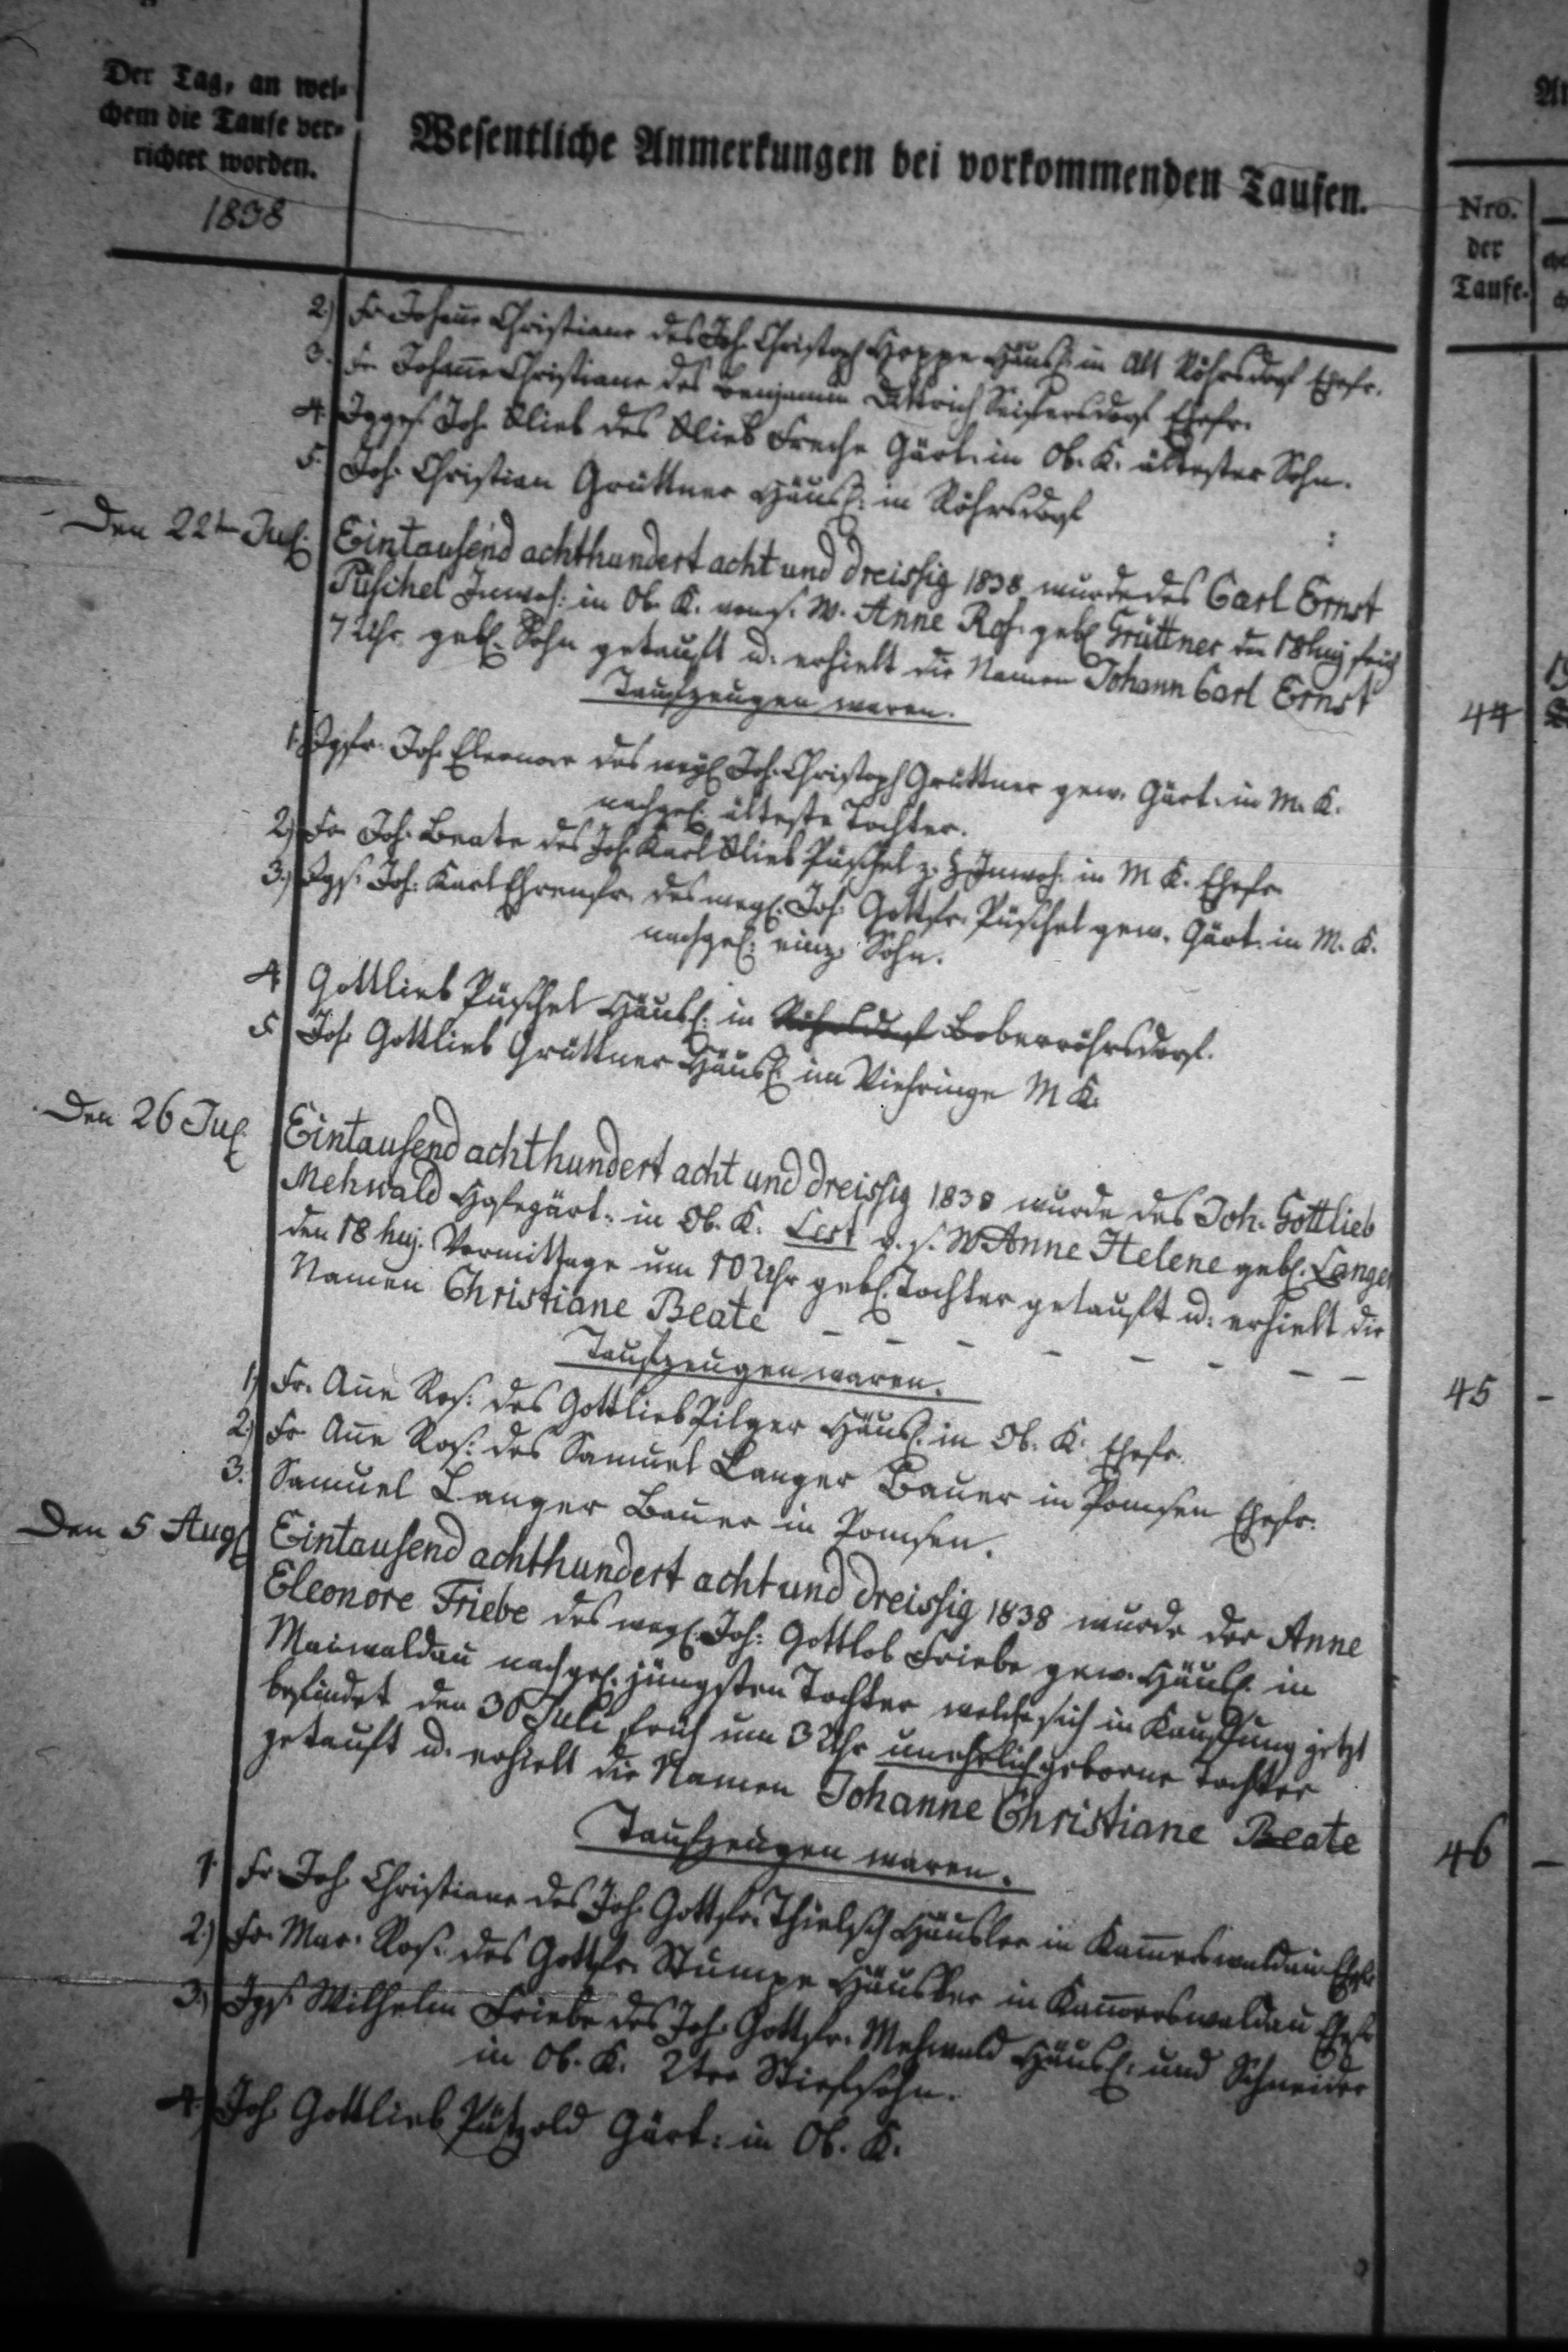 Der Tag, an wel-
chem die Taufe ver-
richtet worden.
1838
Wesentliche Anmerkungen bei vorkommenden Taufen.
Nro.
der
Taufe.
2.) Fr Johañe Christiane des Joh. Christoph Hoppe Häusl: in Alt Röhrsdorf Ehefr.
3. Fr. Johañe Christiane des Benjamin Dittrich Seifersdorf Ehefr.
4. Jgges. Joh. Glieb des Glieb Freche Gärt. in Ob. K. ältester Sohn.
5. Joh. Christian Grüttner Häusl: in Röhrsdorf
Den 22ten Jul. Eintausend achthundert acht und dreissig 1838 wurde des Carl Ernst
Püschel Inwoh: in Ob. K. von s. W. Anne Ros. geb. Grüttner den 18 huj früh
7 Uhr geb. Sohn getauft u. erhielt die Namen Johann Carl Ernst
Taufzeugen waren.
1. Jgfr. Joh. Eleonore des weyl Joh. Christoph Grüttner gew. Gärt. in M. K.
nachgel. älteste Tochter.
2.) Fr. Joh. Beate des Joh. Karl Glieb Püschel z. Z Inwoh. in M K. Ehefr.
3.) Jgs. Joh. Karl Ehrenfr. des weyl. Joh. Gottfr. Püschel gew. Gärt. in M. K.
nachgel. einz. Sohn.
4. Gottlieb Püschel Häusl: in Röhrsdorf Boberröhrsdorf.
5 Joh. Gottlieb Grüttner Häusl. im Viehringe M K.
44
Den 26 Jul. Eintausend achthundert acht und dreissig 1838 wurde des Joh. Gottlieb
Mehwald Hofegärt: in Ob. K. Lest v. s. W Anne Helene geb. Langer
den 18 huj. Vormittage um 10 Uhr geb. Tochter getauft u. erhielt die
Namen Christiane Beate
Taufzeugen waren.
1.) Fr. Añe Ros. des Gottlieb Pilger Häusl. in Ob. K. Ehefr.
2.) Fr Añe Ros. des Samuel Langer Bauer in Pomsen Ehefr.
3. Samuel Langer Bauer in Pomsen.
45
Den 5 Aug. Eintausend achthundert acht und dreissig 1838 wurde der Anne
Eleonore Friebe des weyl. Joh: Gottlob Friebe gew. Häusl. in
Maiwaldau nachgel. jüngsten Tochter welche sich in Kauffung jetzt
befindet den 30 Juli früh um 3 Uhr unehelich geborne Tochter
getauft u. erhielt die Namen Johanne Christiane Beate
Taufzeugen waren.
1. Fr Joh. Christiane des Joh. Gottfr. Thielsch Häusler in Kam̄erswaldau Ehefr
2.) Fr. Mar. Ros. des Gottfr. Stumpe Häusler in Kam̄erswaldau Ehefr
3.) Jgs. Wilhelm Friebe des Joh. Gottfr. Mehwald Häusl. und Schneider
in Ob. K. 2ter Stiefsohn.
4. Joh. Gottlieb Pätzold Gärt: in Ob. K.
46